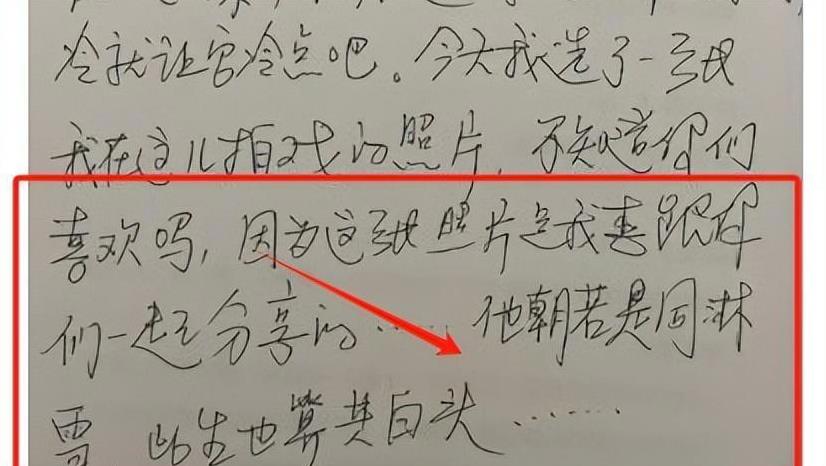 冷就让它冷点吧。今天我选了一张
我在这儿拍戏的照片，不知道你们
喜欢吗，因为这张照片是我喜跟你
们一起分享的……他朝若是同淋
雪 此生也算共白头……